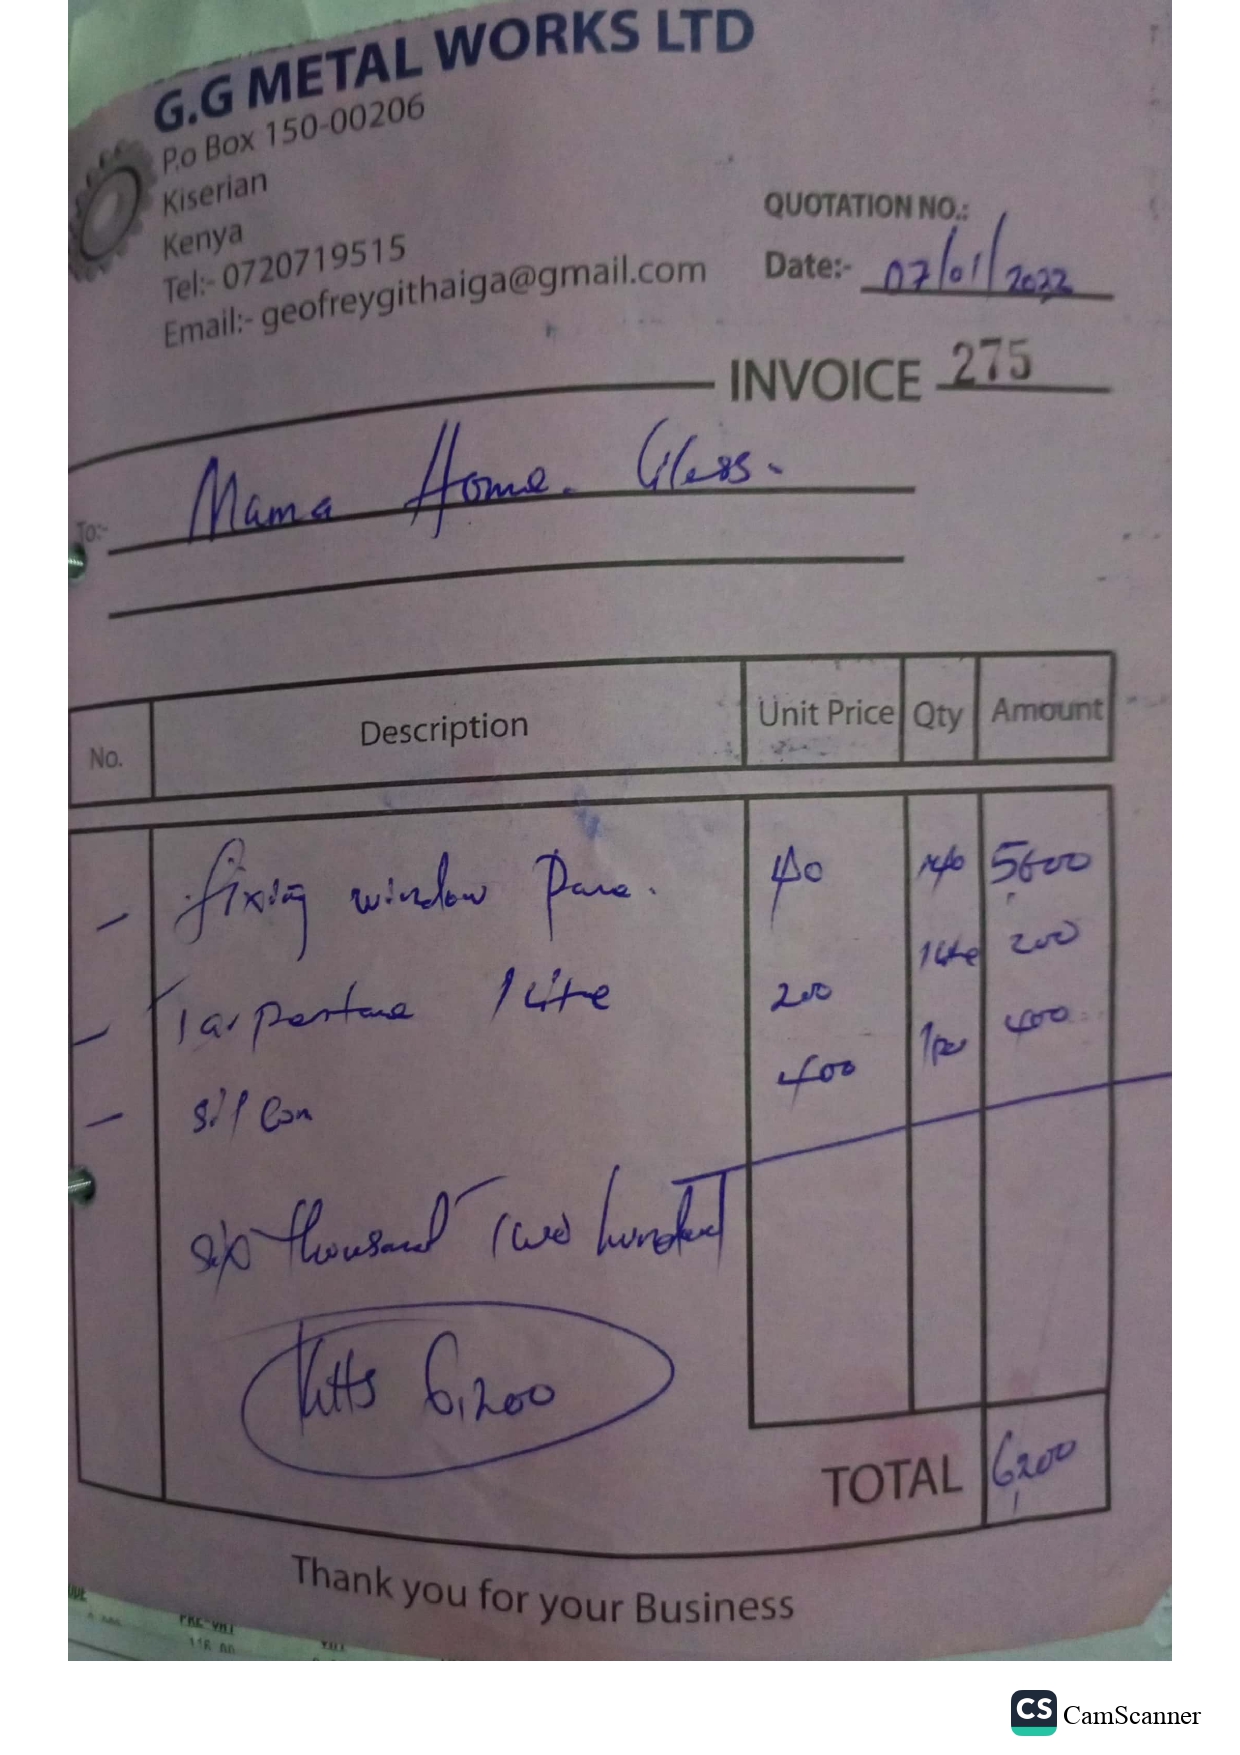 G.G METAL WORKS LTD
P.o Box 150-00206
Kiserian
Kenya
Tel:- 0720719515
Email:- geofreygithaiga@gmail.com
QUOTATION NO.:
Date:- 07/01/2022
INVOICE 275
To:- Mama Home. Glass.
No. Description Unit Price Qty Amount
- fixing window Pane. 40 140 5600
- 1 Litre 200 1 Litre 200
- silcon 400 1pc 400
six thousand two hundred
Kshs 6,200
TOTAL 6,200
Thank you for your Business
PRE-VAT
CS CamScanner